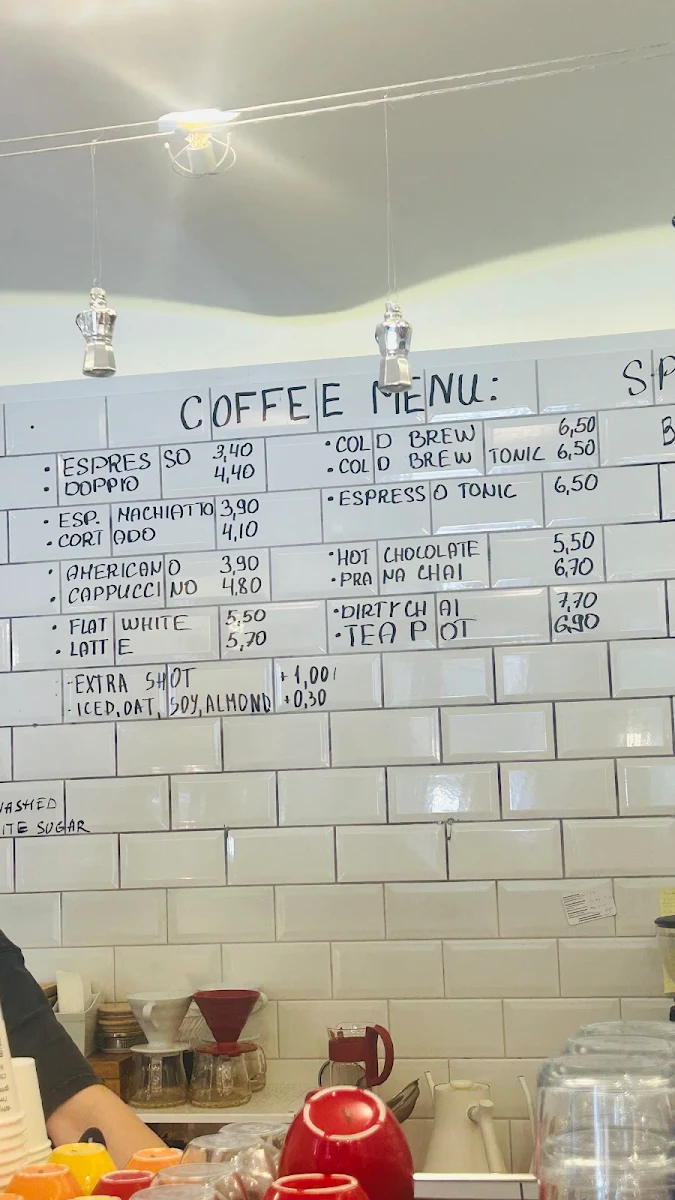 COFFEE MENU:
· ESPRESSO 3,40
· DOPPIO 4,40
· ESP. MACHIATTO 3,90
· CORTADO 4,10
· AMERICANO 3,90
· CAPPUCCINO 4,80
· FLAT WHITE 5,50
· LATTE 5,70
- EXTRA SHOT +1,00
- ICED, OAT, SOY, ALMOND +0,30
· COLD BREW 6,50
· COLD BREW TONIC 6,50
· ESPRESSO TONIC 6,50
· HOT CHOCOLATE 5,50
· PRANA CHAI 6,70
· DIRTY CHAI 7,70
· TEA POT 6,90
SP
B
WASHED
ITE SUGAR